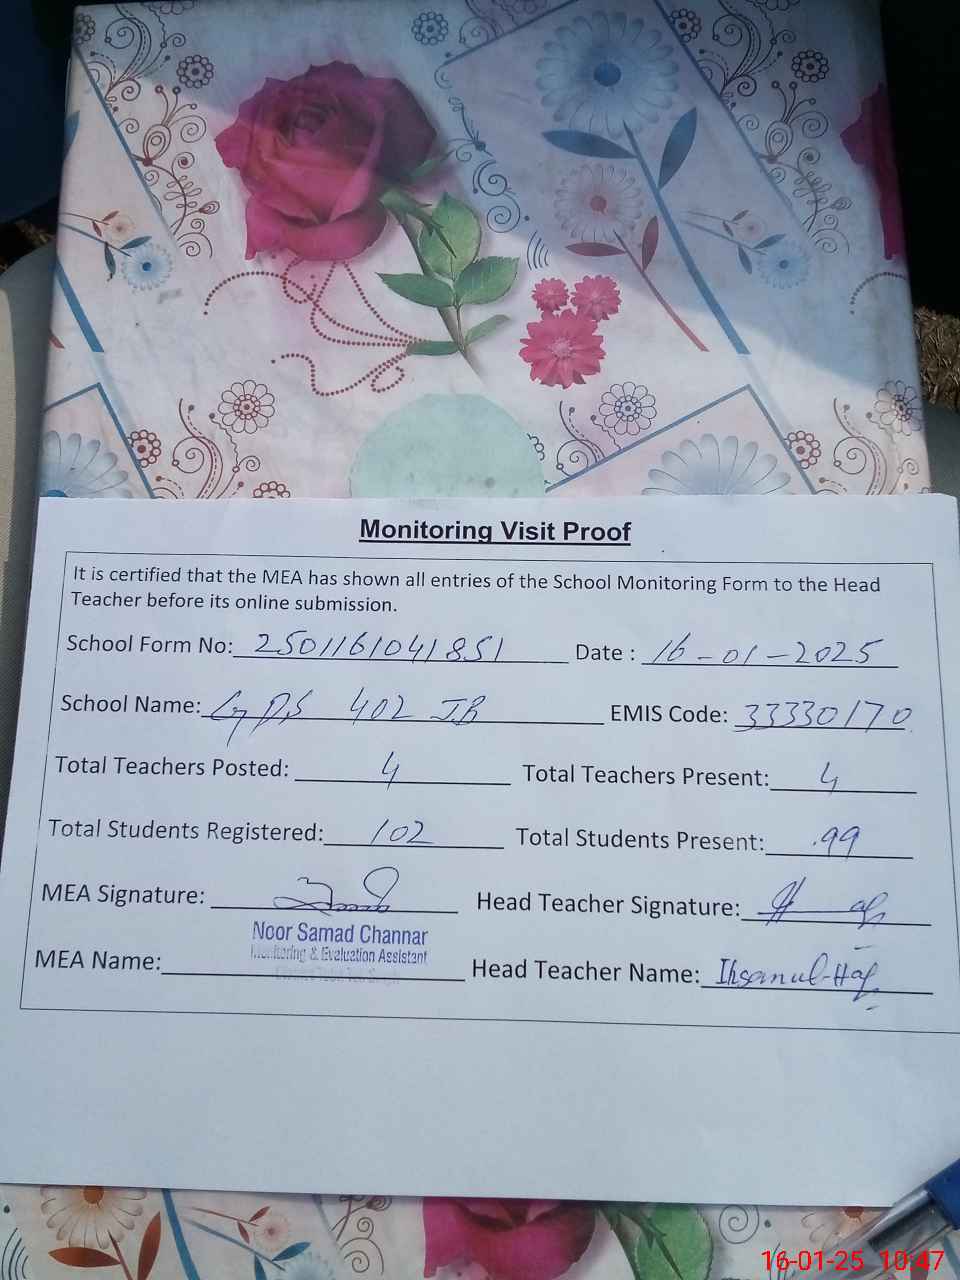 Monitoring Visit Proof
It is certified that the MEA has shown all entries of the School Monitoring Form to the Head
Teacher before its online submission.
School Form No: 2501161041851 Date : 16-01-2025
School Name: GPS 402 JB EMIS Code: 33330170
Total Teachers Posted: 4 Total Teachers Present: 4
Total Students Registered: 102 Total Students Present: 99
MEA Signature: Head Teacher Signature:
Noor Samad Channar
Monitoring & Evaluation Assistant
MEA Name: Head Teacher Name: Ihsanul-Haq
16-01-25 10:47